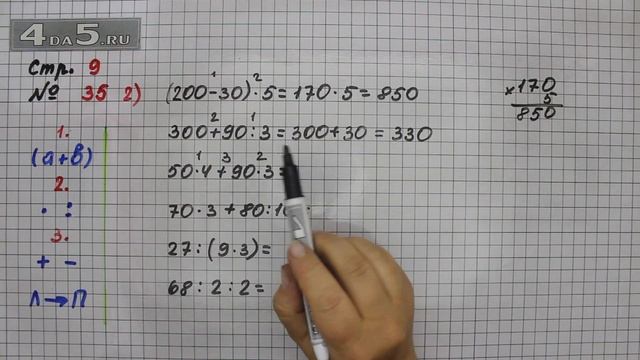 4DA5.RU
Стр. 9
№ 35 2)
1.
(а+в)
2.
· :
3.
+ -
Л→П
(200-30)·5=170·5=850
1 2
300+90:3=300+30=330
2 1
50·4+90·3=
1 3 2
70·3+80:1
27:(9·3)=
68:2:2=
×170
5
850